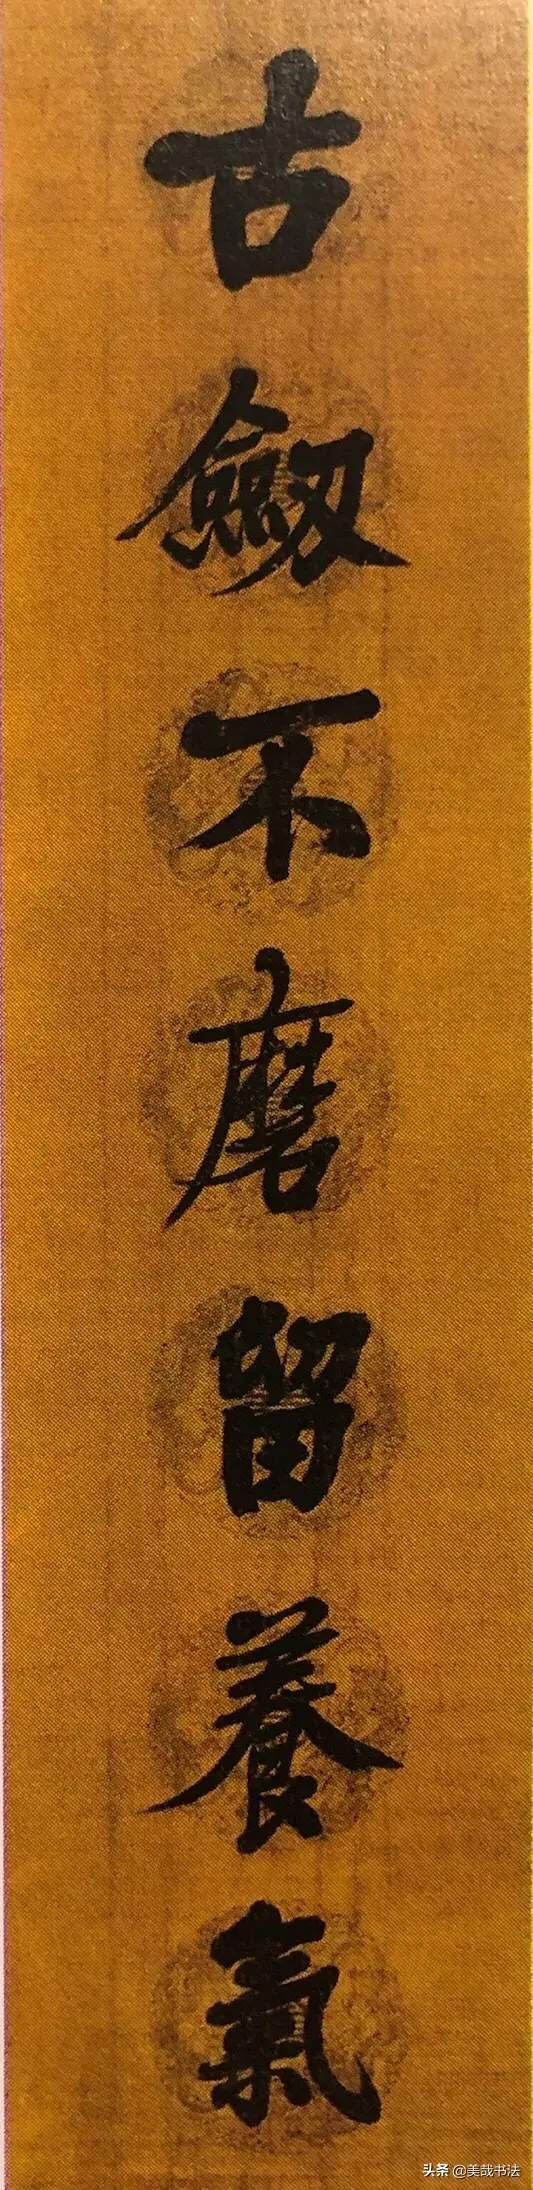 古劒不磨留養氣
头条 @美哉书法